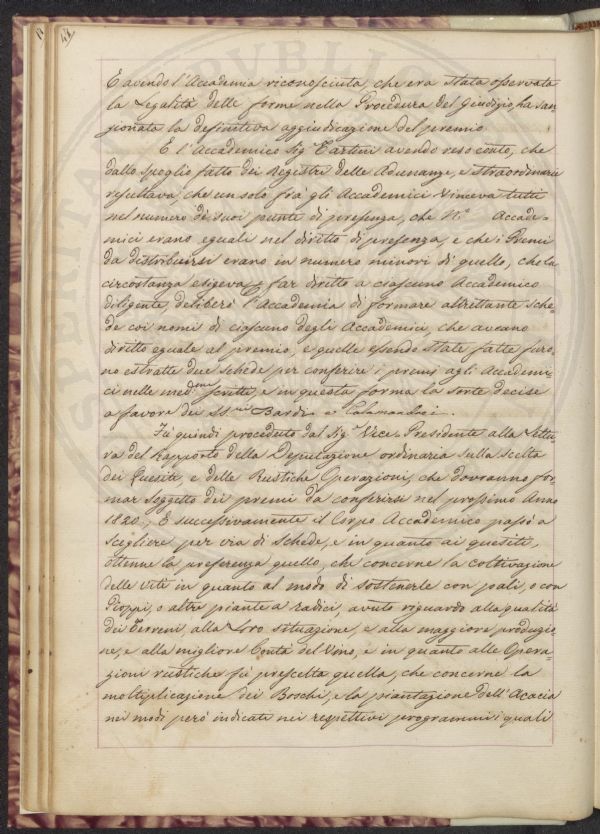 E avendo l'Accademia riconosciuta, che era stata osservata
la Legalità delle forme nella Procedura del giudizio, ha san=
zionata la definitiva aggiudicazione del premio
E l'Accademico Sig.r Tartini avendo reso conto, che
dallo spoglio fatto dei Registri delle Adunanze, e straordinarie
resultava, che un solo frà gli Accademici vinceva tutti
nel numero de' suoi punti di presenza, che N.o Accade=
mici erano eguali nel diritto di presenza, e che i Premi
da distribuirsi erano in numero minori di quello, che la
circostanza esigeva p far diritto a ciascuno Accademico
diligente, deliberò l'Accademia di formare altrettante sche=
de coi nomi di ciascuno degli Accademici, che aveano
diritto eguale al premio, e quelle essendo state fatte furo=
no estratte due schede per conferire i premi agli Accademi=
ci nelle med.me scritti, e in questa forma la sorte decise
a favore dei SS.ri Bardi e Calamandrei.
Fù quindi proceduto dal Sig.r Vice-Presidente alla Lettu=
ra del Rapporto della Deputazione ordinaria sulla scelta
dei Quesiti, e delle Rustiche Operazioni, che dovranno for=
mar soggetto dei premi da conferirsi nel prossimo Anno
1820., E successivamente il Corpo Accademico passò a
scegliere per via di Schede, e in quanto ai quesiti,
ottenne la preferenza quello, che concerne la coltivazione
delle viti in quanto al modo di sostenerle con pali, o con
Pioppi, o altre piante a radici, avuto riguardo alla qualità
dei Terreni, alla Loro situazione, e alla maggiore produzio=
ne, e alla migliore bontà del Vino, e in quanto alle Opera=
zioni rustiche fù prescelta quella, che concerne la
moltiplicazione dei Boschi, e la piantazione dell'Acacia
nei modi però indicati nei respettivi programmi i quali